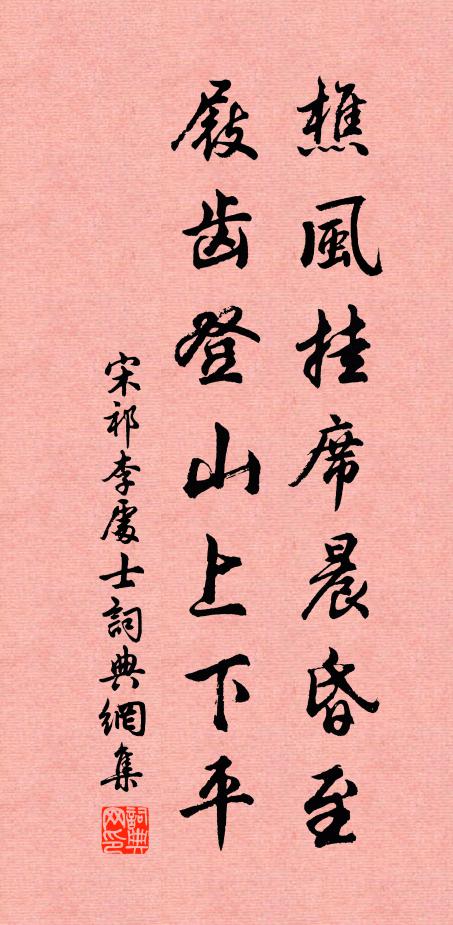 樵風挂席晨昏至
屐齿登山上下平
宋祁李處士詞典網集
詞典网印